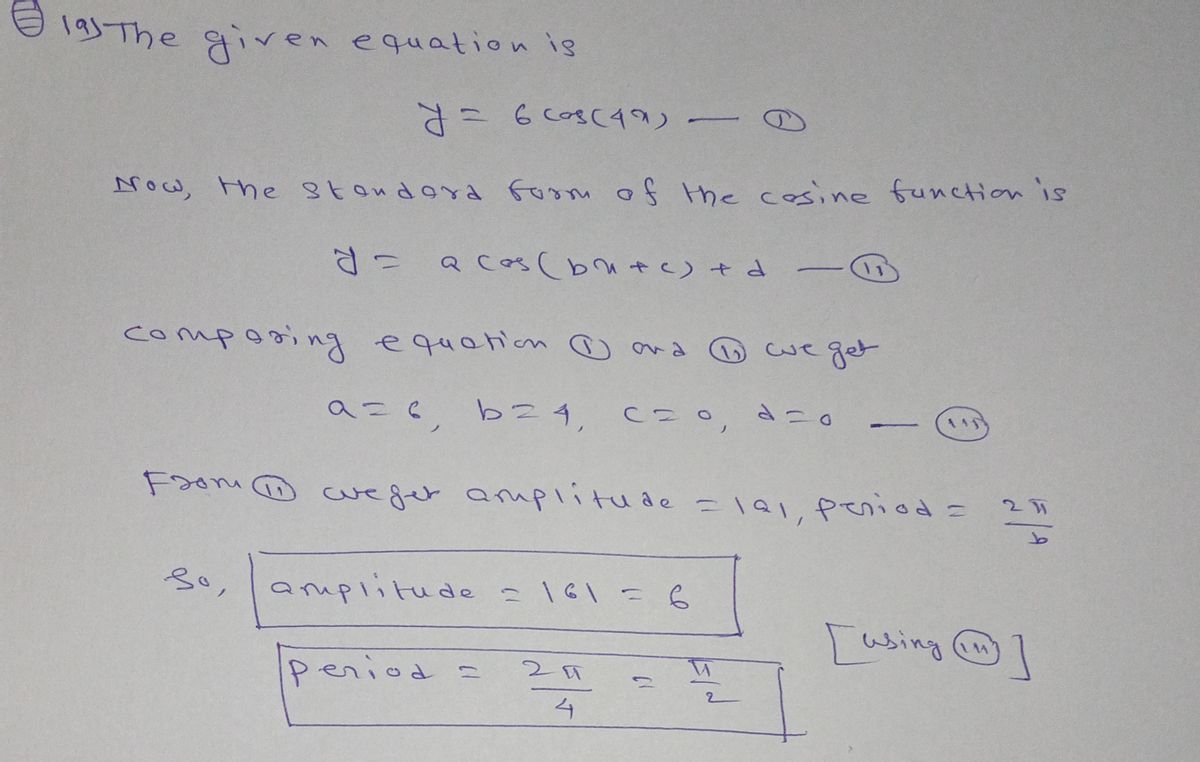 19) The given equation is
y = 6 cos(4x) — (i)
Now, the standard form of the cosine function is
y = a cos(bx+c) + d — (ii)
comparing equation (i) and (ii) we get
a=6, b=4, c=0, d=0 — (iii)
From (ii) we get amplitude = |a|, period = 2π/b
So, amplitude = |6| = 6
[using (iii)]
period = 2π/4 = π/2